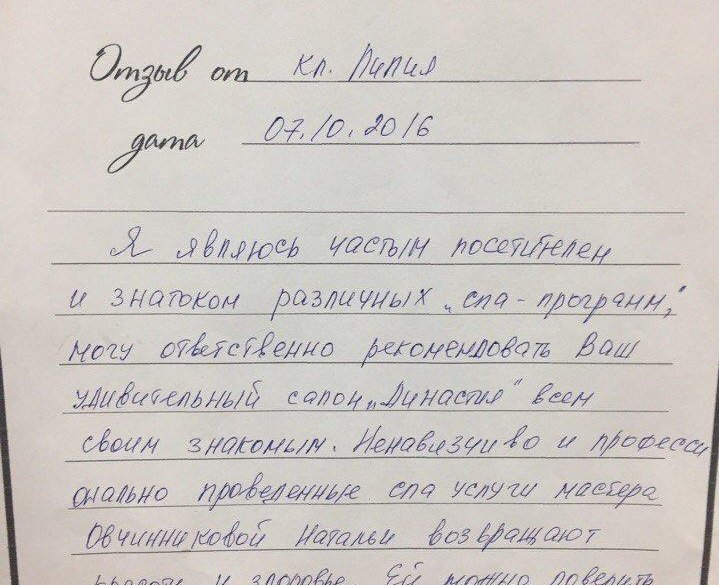 Отзыв от кл. Лилия
дата 07.10.2016
Я являюсь частым посетителем
и знатоком различных „спа-программ,"
могу ответственно рекомендовать Ваш
удивительный салон „Династия" всем
своим знакомым. Ненавязчиво и професси
онально проведенные спа услуги мастера
Овчинниковой Натальи возвращают
красоту и здоровье. Ей можно доверить